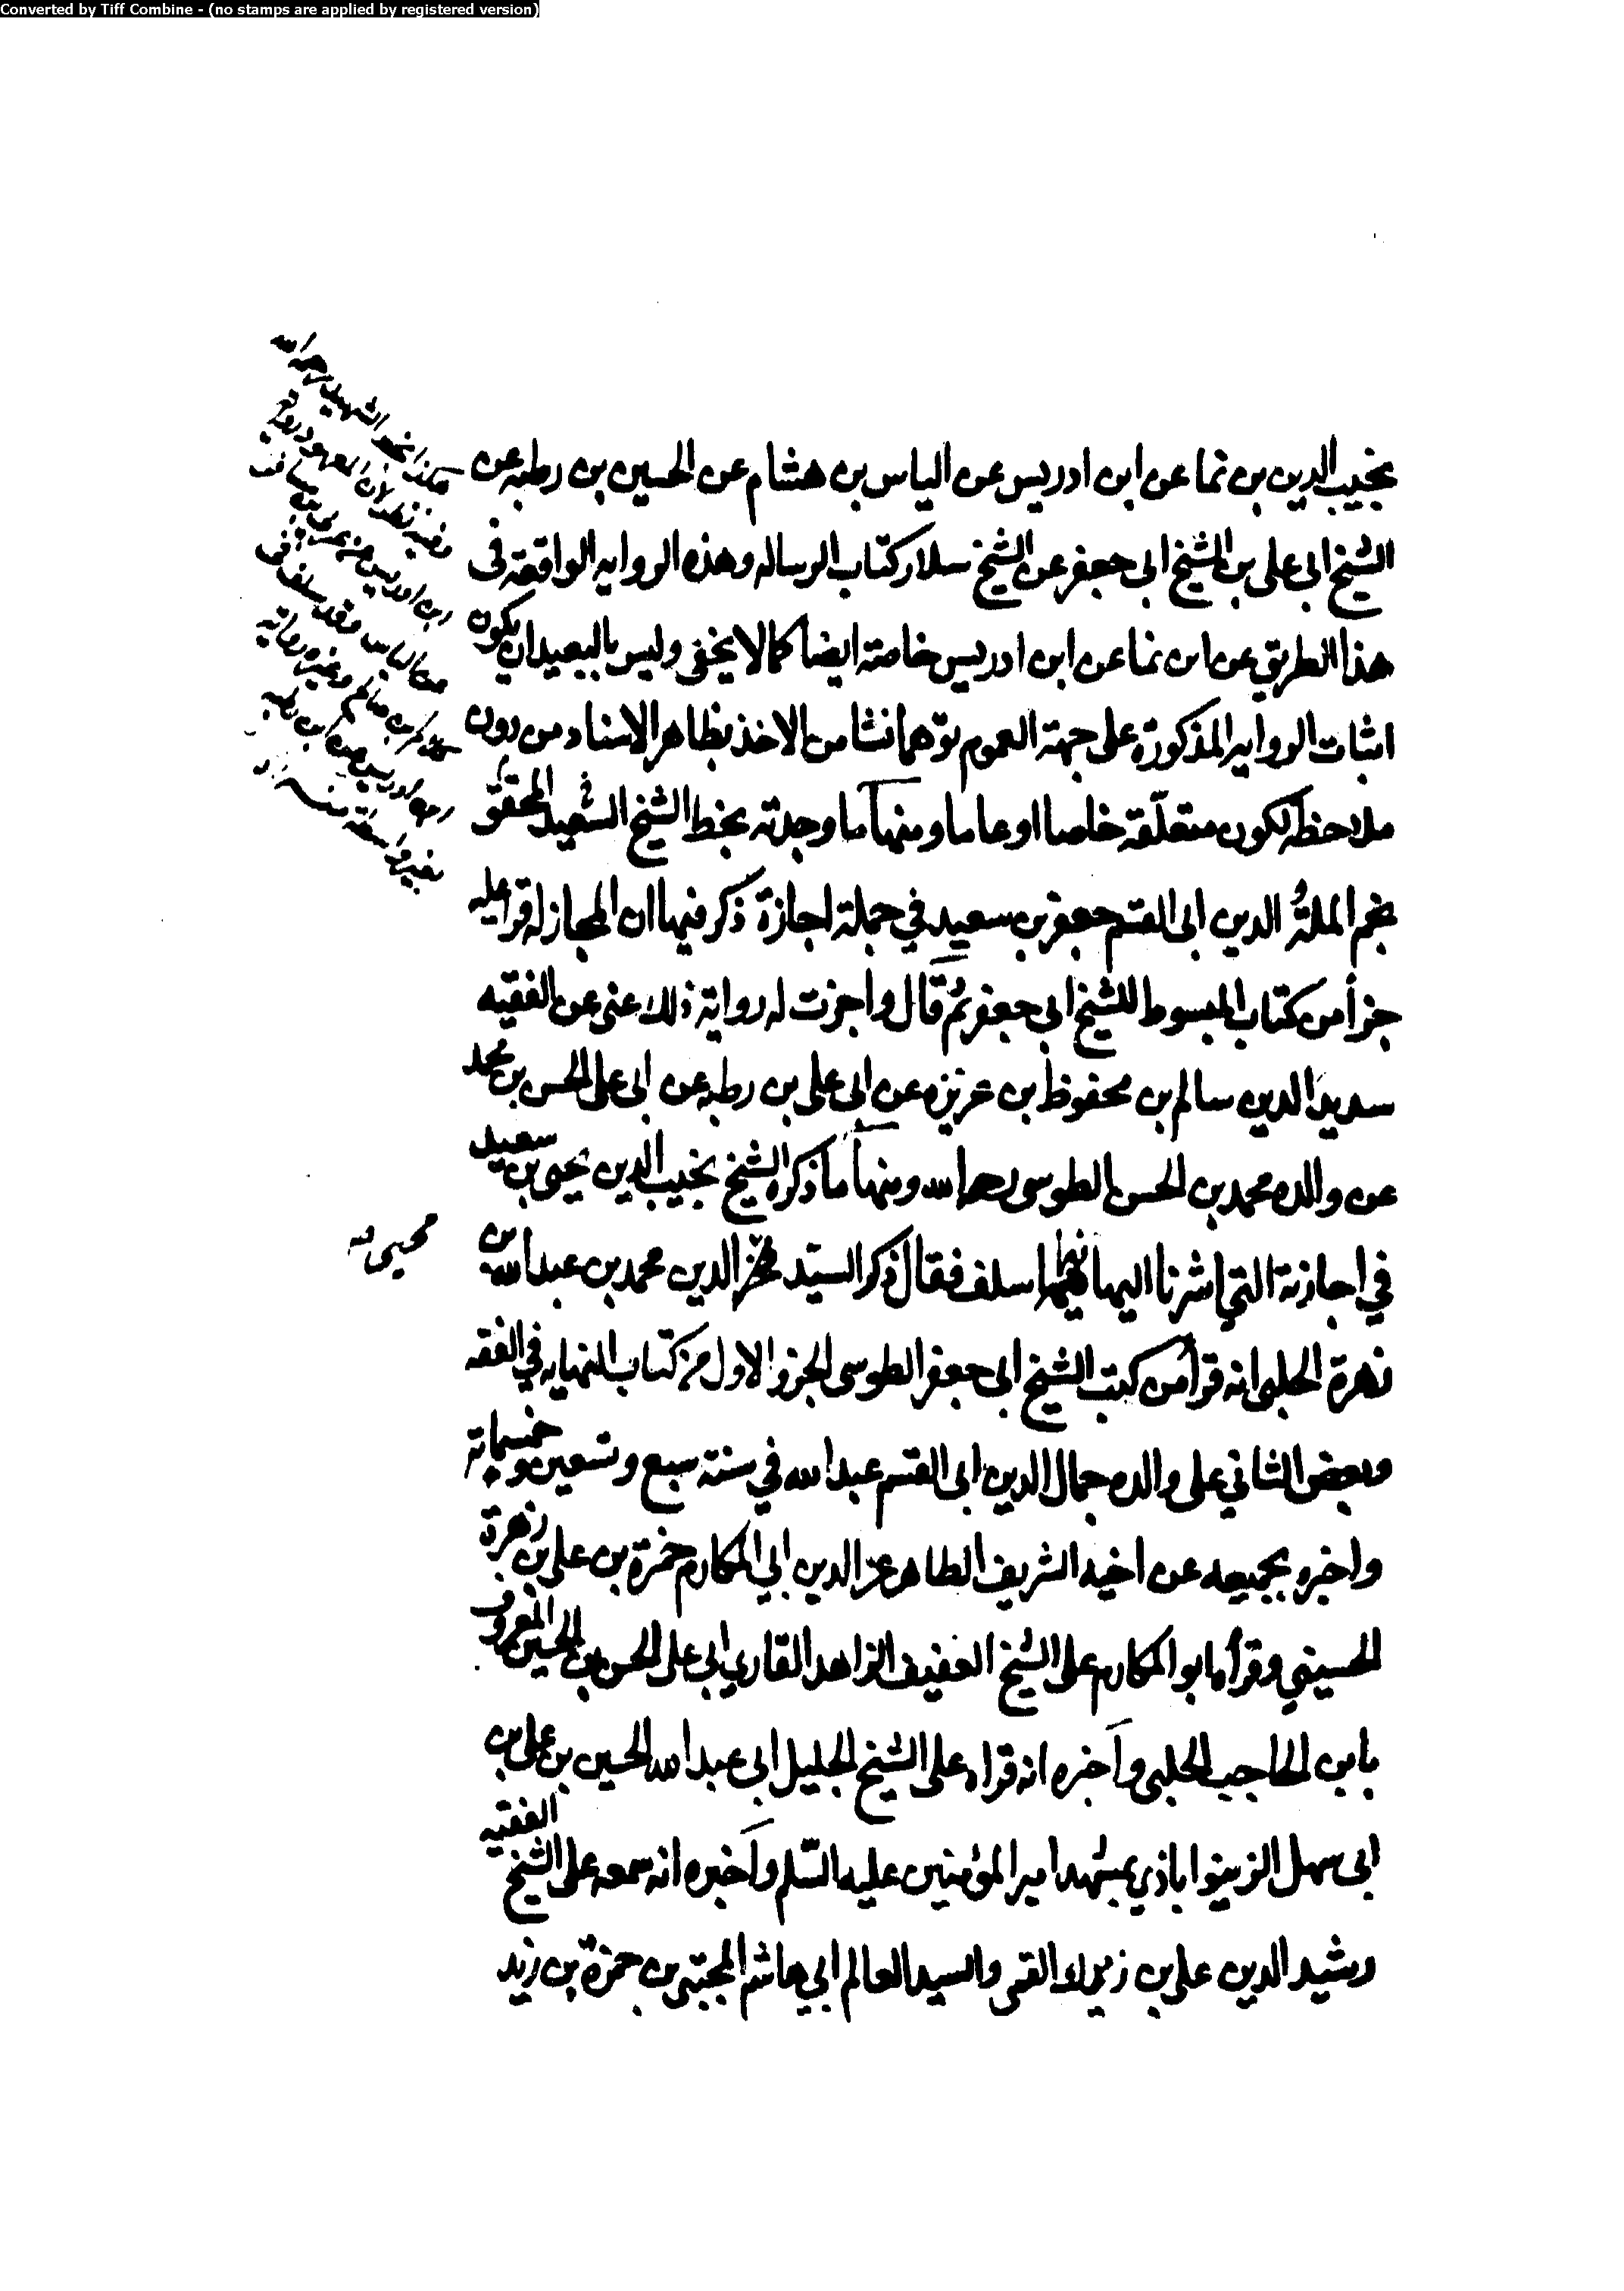 Converted by Tiff Combine - (no stamps are applied by registered version)
نجيب الدين بن نما عن ابن ادريس عن الياس بن هشام عن الحسين بن رطبه عن
الشيخ ابى على بن الشيخ ابى جعفر عن الشيخ سلار كتاب الرساله وهذه الروايه الواقعة فى
هذا الطريق عن ابن نما عن ابن ادريس خاصته ايضا كما لا يخفى وليس بالبعيد ان يكون
اثبات الروايه المذكورة على جهة العموم توهما نشا من الاخذ بظاهر الاسناد من دون
ملاحظه لكون متعلّقه خاصا او عاما ومنها ما وجدته بخط الشيخ الشهيد المحقق
نجم الملة والدين ابى القسم جعفر بن سعيد في جملة اجازة ذكر فيها ان المجاز له قرا عليه
جزأ من كتاب المبسوط للشيخ ابى جعفر ثم قال واجزت له رواية ذلك عنى عن الفقيه
سديد الدين سالم بن محفوظ بن عزيزه عن ابى على بن رطبه عن ابى على الحسن بن محمد
عن والده محمد بن الحسن الطوسى رحمهم الله ومنها ما ذكره الشيخ نجيب الدين يحيى بن سعيد
في اجازته التي اشرنا اليها فيما سلف فقال ذكر السيّد محيى الدين محمد بن عبد الله بن
محيى
زهرة الحلبى انه قرأ من كتب الشيخ ابى جعفر الطوسى الجزو الاول من كتاب النهايه في الفقه
وبعض الثاني على والده جمال الدين ابى القسم عبد الله في سنة سبع وتسعين وخمسمائة
واخبره بجميعه عن اخيه الشريف الطاهر عز الدين ابي المكارم حمزة بن على بن زهرة
الحسيني وقرأها ابو المكارم على الشيخ العفيف الزاهد القاري ابى على الحسن بن الحسين المعروف
بابن الحاجب الحلبى واخبره انه قراه على الشيخ الجليل ابى عبد الله الحسين بن على بن
ابى سهل الزينوا باذي بمشهد امير المؤمنين عليه السّلم واخبره انه سمعه على الشيخ الفقيه
رشيد الدين على بن زيرك القمى والسيد العالم ابي هاشم المجتبى بن حمزة بن زيد